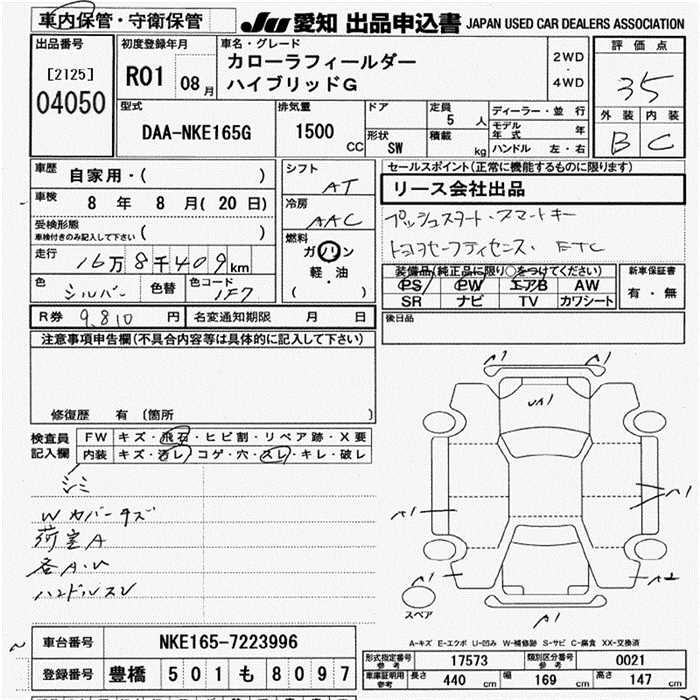 車内保管・守衛保管
JU 愛知 出品申込書 JAPAN USED CAR DEALERS ASSOCIATION
出品番号
[2125]
04050
初度登録年月
R01 08 月
車名・グレード
カローラフィールダー
ハイブリッドG
2WD
・
4WD
評価点
35
外装 内装
B C
型式
DAA-NKE165G
排気量
1500 CC
ドア
形状 SW
定員 5 人
積載 kg
ディーラー・並行
モデル年式 年
ハンドル 左・右
車歴 自家用・( )
車検 8 年 8 月(20 日)
受検形態
車検付きのみ記入して下さい ( )
走行 16万8千409km
色 シルバー 色替 色コード 1F7
シフト AT
冷房 AAC
燃料
ガソリン
軽・油
( )
セールスポイント(正常に機能するものに限る)
リース会社出品
プッシュスタート・スマートキー
トヨタセーフティセンス・ETC
装備品(純正品に限り○をつけてください)
PS PW エアB AW
SR ナビ TV カワシート
新車保証書
有・無
R券 9,810 円 名変通知期限 月 日
後日品
注意事項申告欄(不具合内容等は具体的に記入して下さい)
修復歴 有 (箇所 )
検査員記入欄
FW キズ・飛石・ヒビ割・リペア跡・X要
内装 キズ・汚レ・コゲ・穴・スレ・キレ・破レ
シミ
Wカバーキズ
荷室A
各A・U
ハンドルスレ
A1 A1
UA1
A1
A1
A1 A2
A1
スペア
A-キズ E-エクボ U-凹み W-補修跡 S-サビ C-腐食 XX-交換済
車台番号 NKE165-7223996
登録番号 豊橋 501 も 8097
型式指定番号 参考 17573 類別区分番号 参考 0021
車庫証明用 参考 長さ 440 cm 幅 169 cm 高さ 147 cm